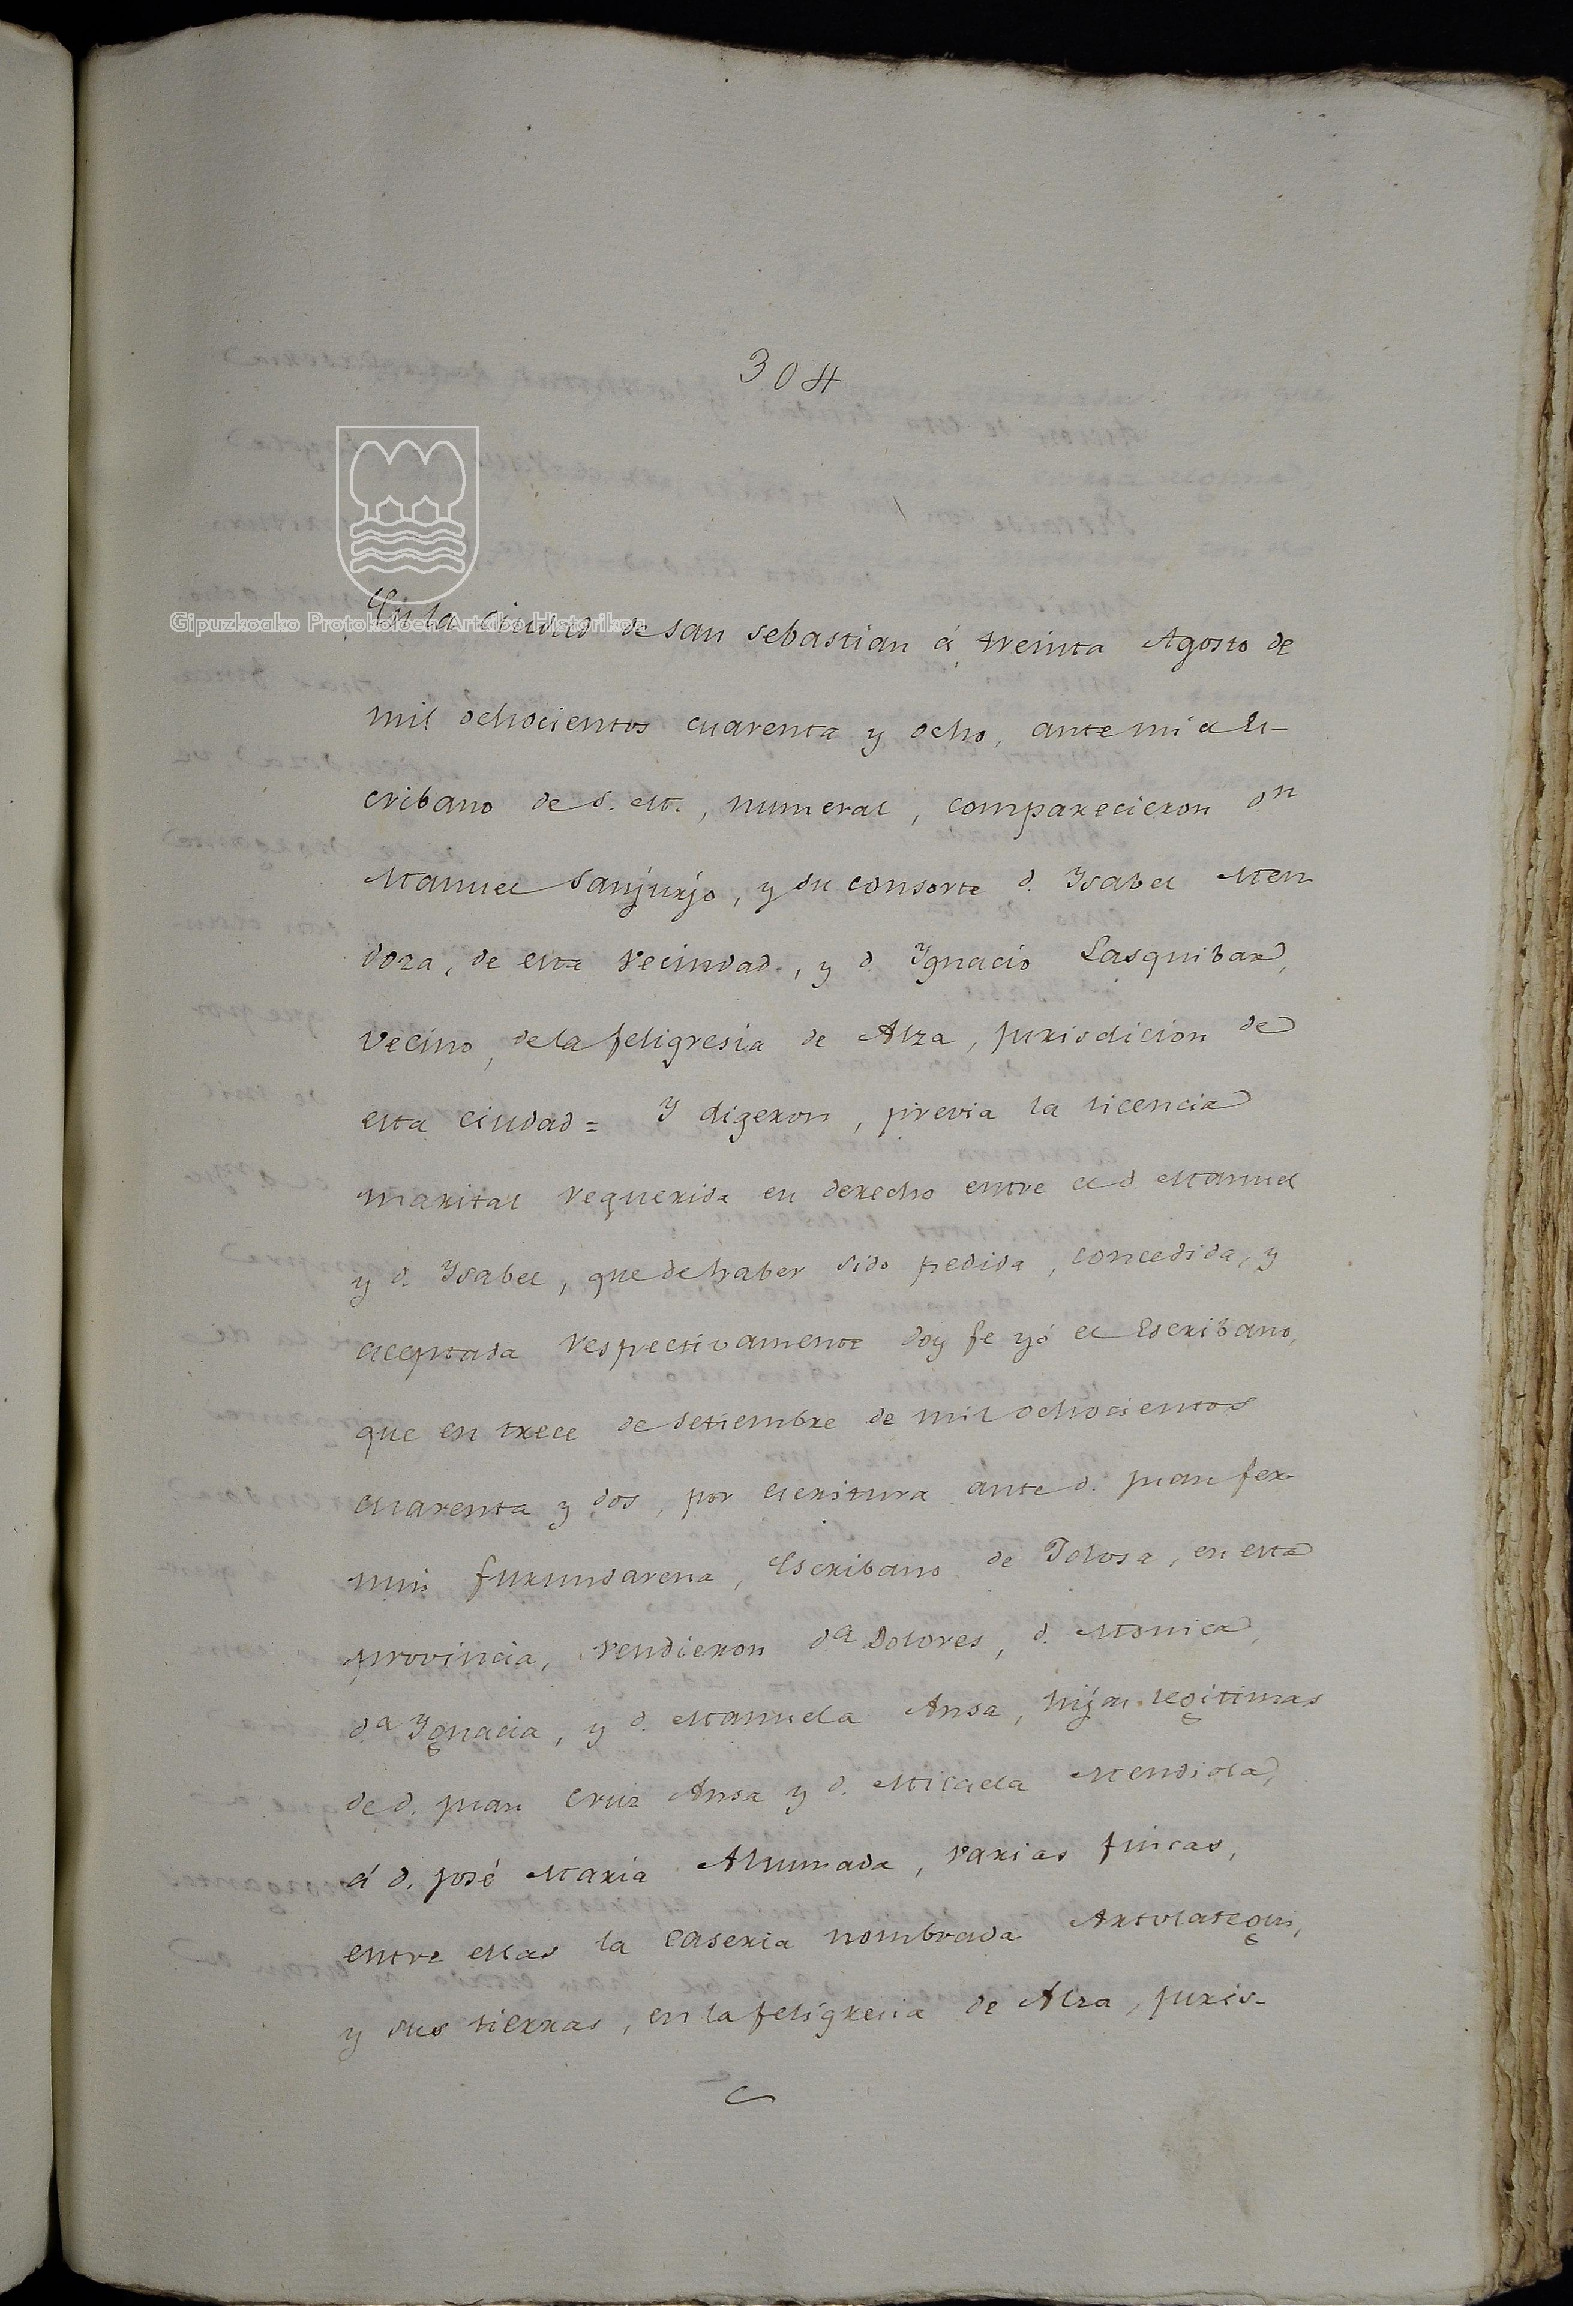 304
Gipuzkoako Protokoloen Artxibo Historikoa
En la ciudad de san sebastian á treinta Agosto de
mil ochocientos cuarenta y ocho, ante mi el Es-
cribano de S. M., numeral, comparecieron Dn
Manuel Sanjurjo, y su consorte d. Ysabel Men
doza, de esta vecindad, y d. Ygnacio Lasquibar,
vecino de la feligresia de Alza, jurisdicion de
esta ciudad = Y digeron, previa la licencia
marital requerida en derecho entre el d Manuel
y d. Ysabel, que de haber sido pedida, concedida, y
aceptada respectivamente doy fe yó el Escribano,
que en trece de setiembre de mil ochocientos
cuarenta y dos, por escritura ante d. Juan fer-
min furundarena, Escribano de Tolosa, en esta
provincia, vendieron da Dolores, d. Monica,
da Ygnacia, y d. Manuela Ansa, hijas legitimas
de d. Juan Cruz Ansa y d. Micaela Mendiola,
á d. José Maria Ahumada, varias fincas,
entre ellas la caseria nombrada Artolategui,
y sus tierras, en la feligresia de Alza, juris-